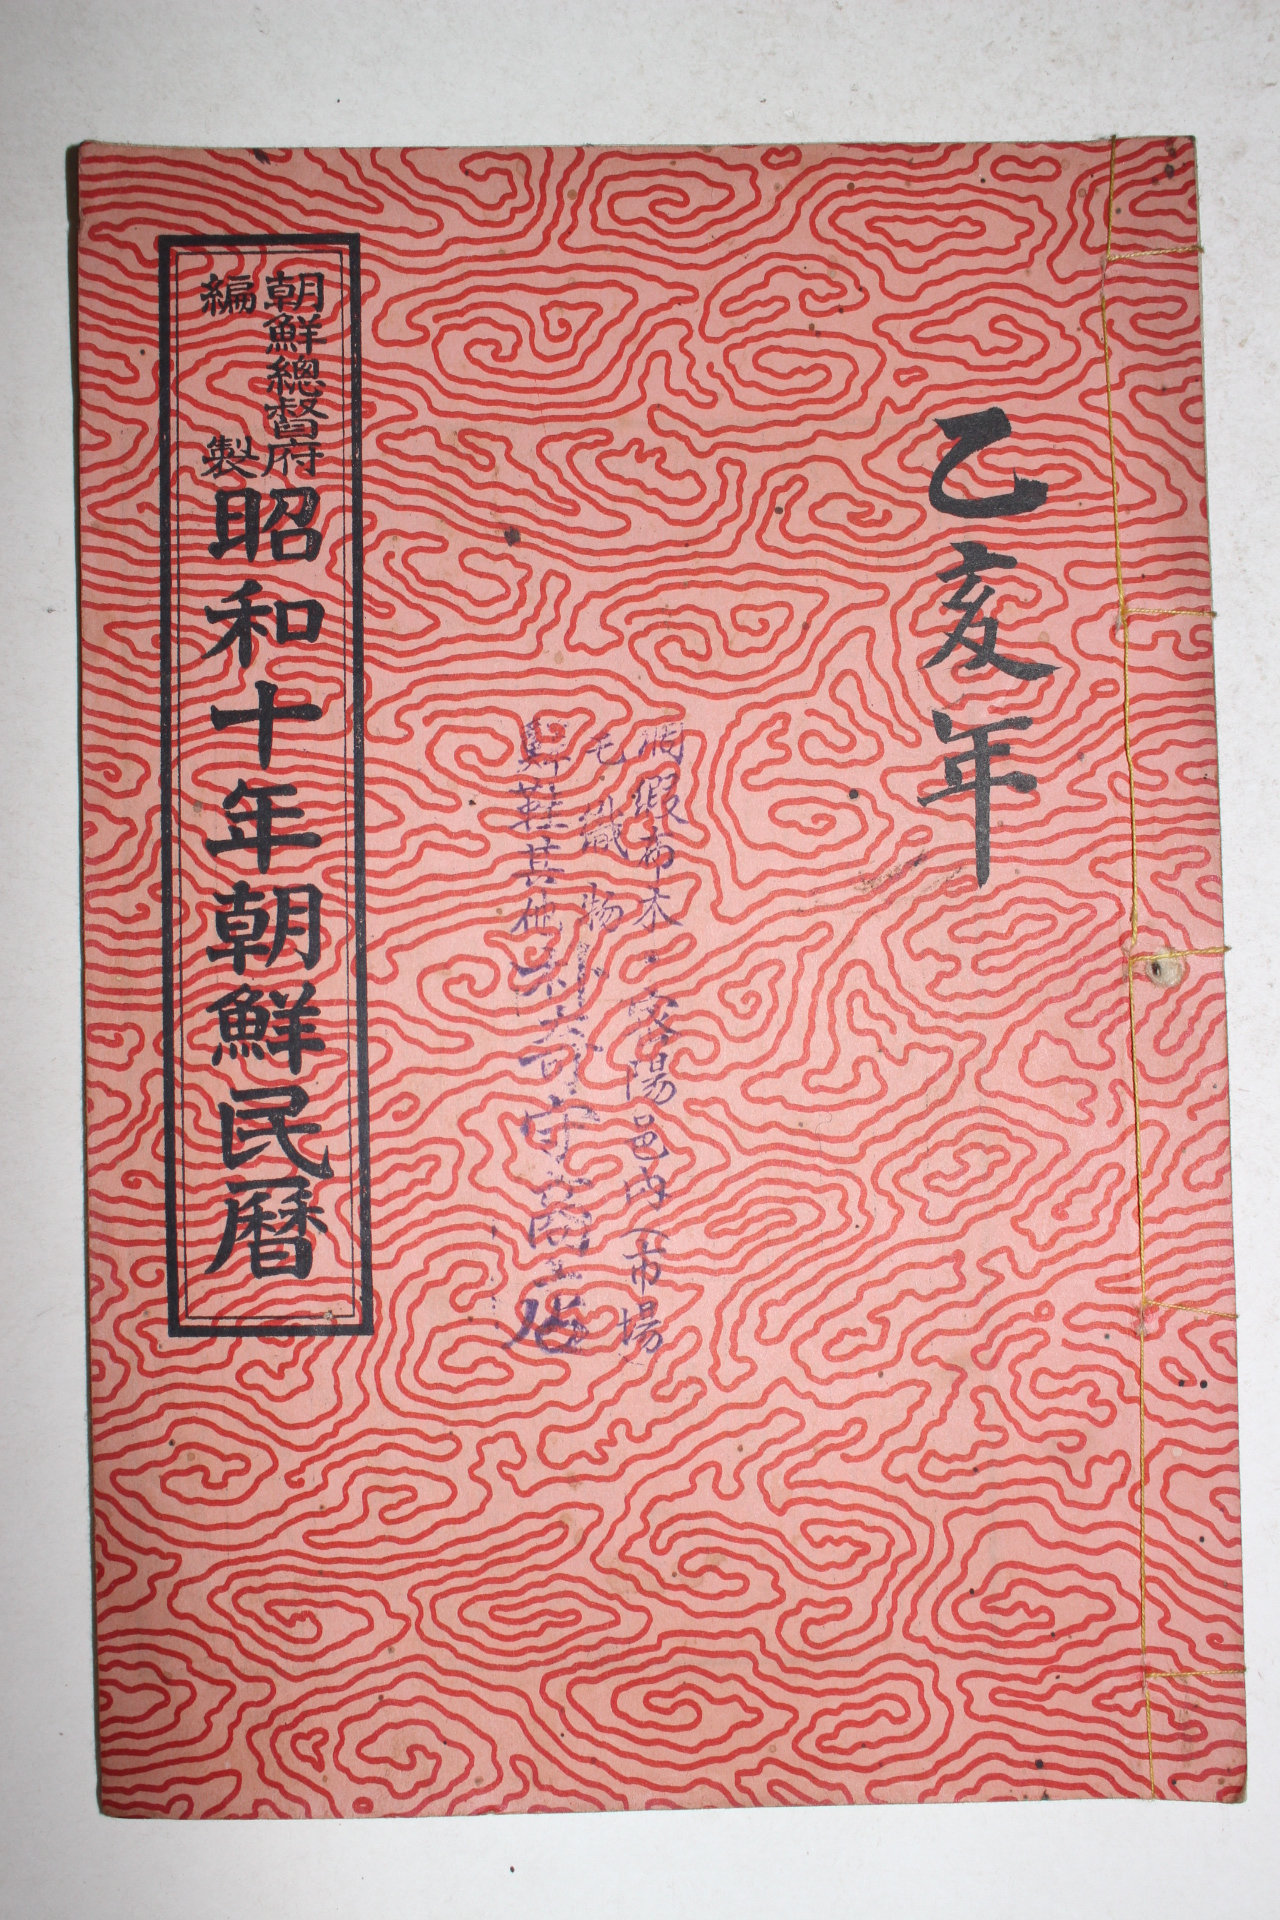 乙亥年
綢緞布木・密陽邑内(市場)
毛織物
鮮鞋其他朴奇守商店
朝鮮總督府
編製
昭和十年朝鮮民曆